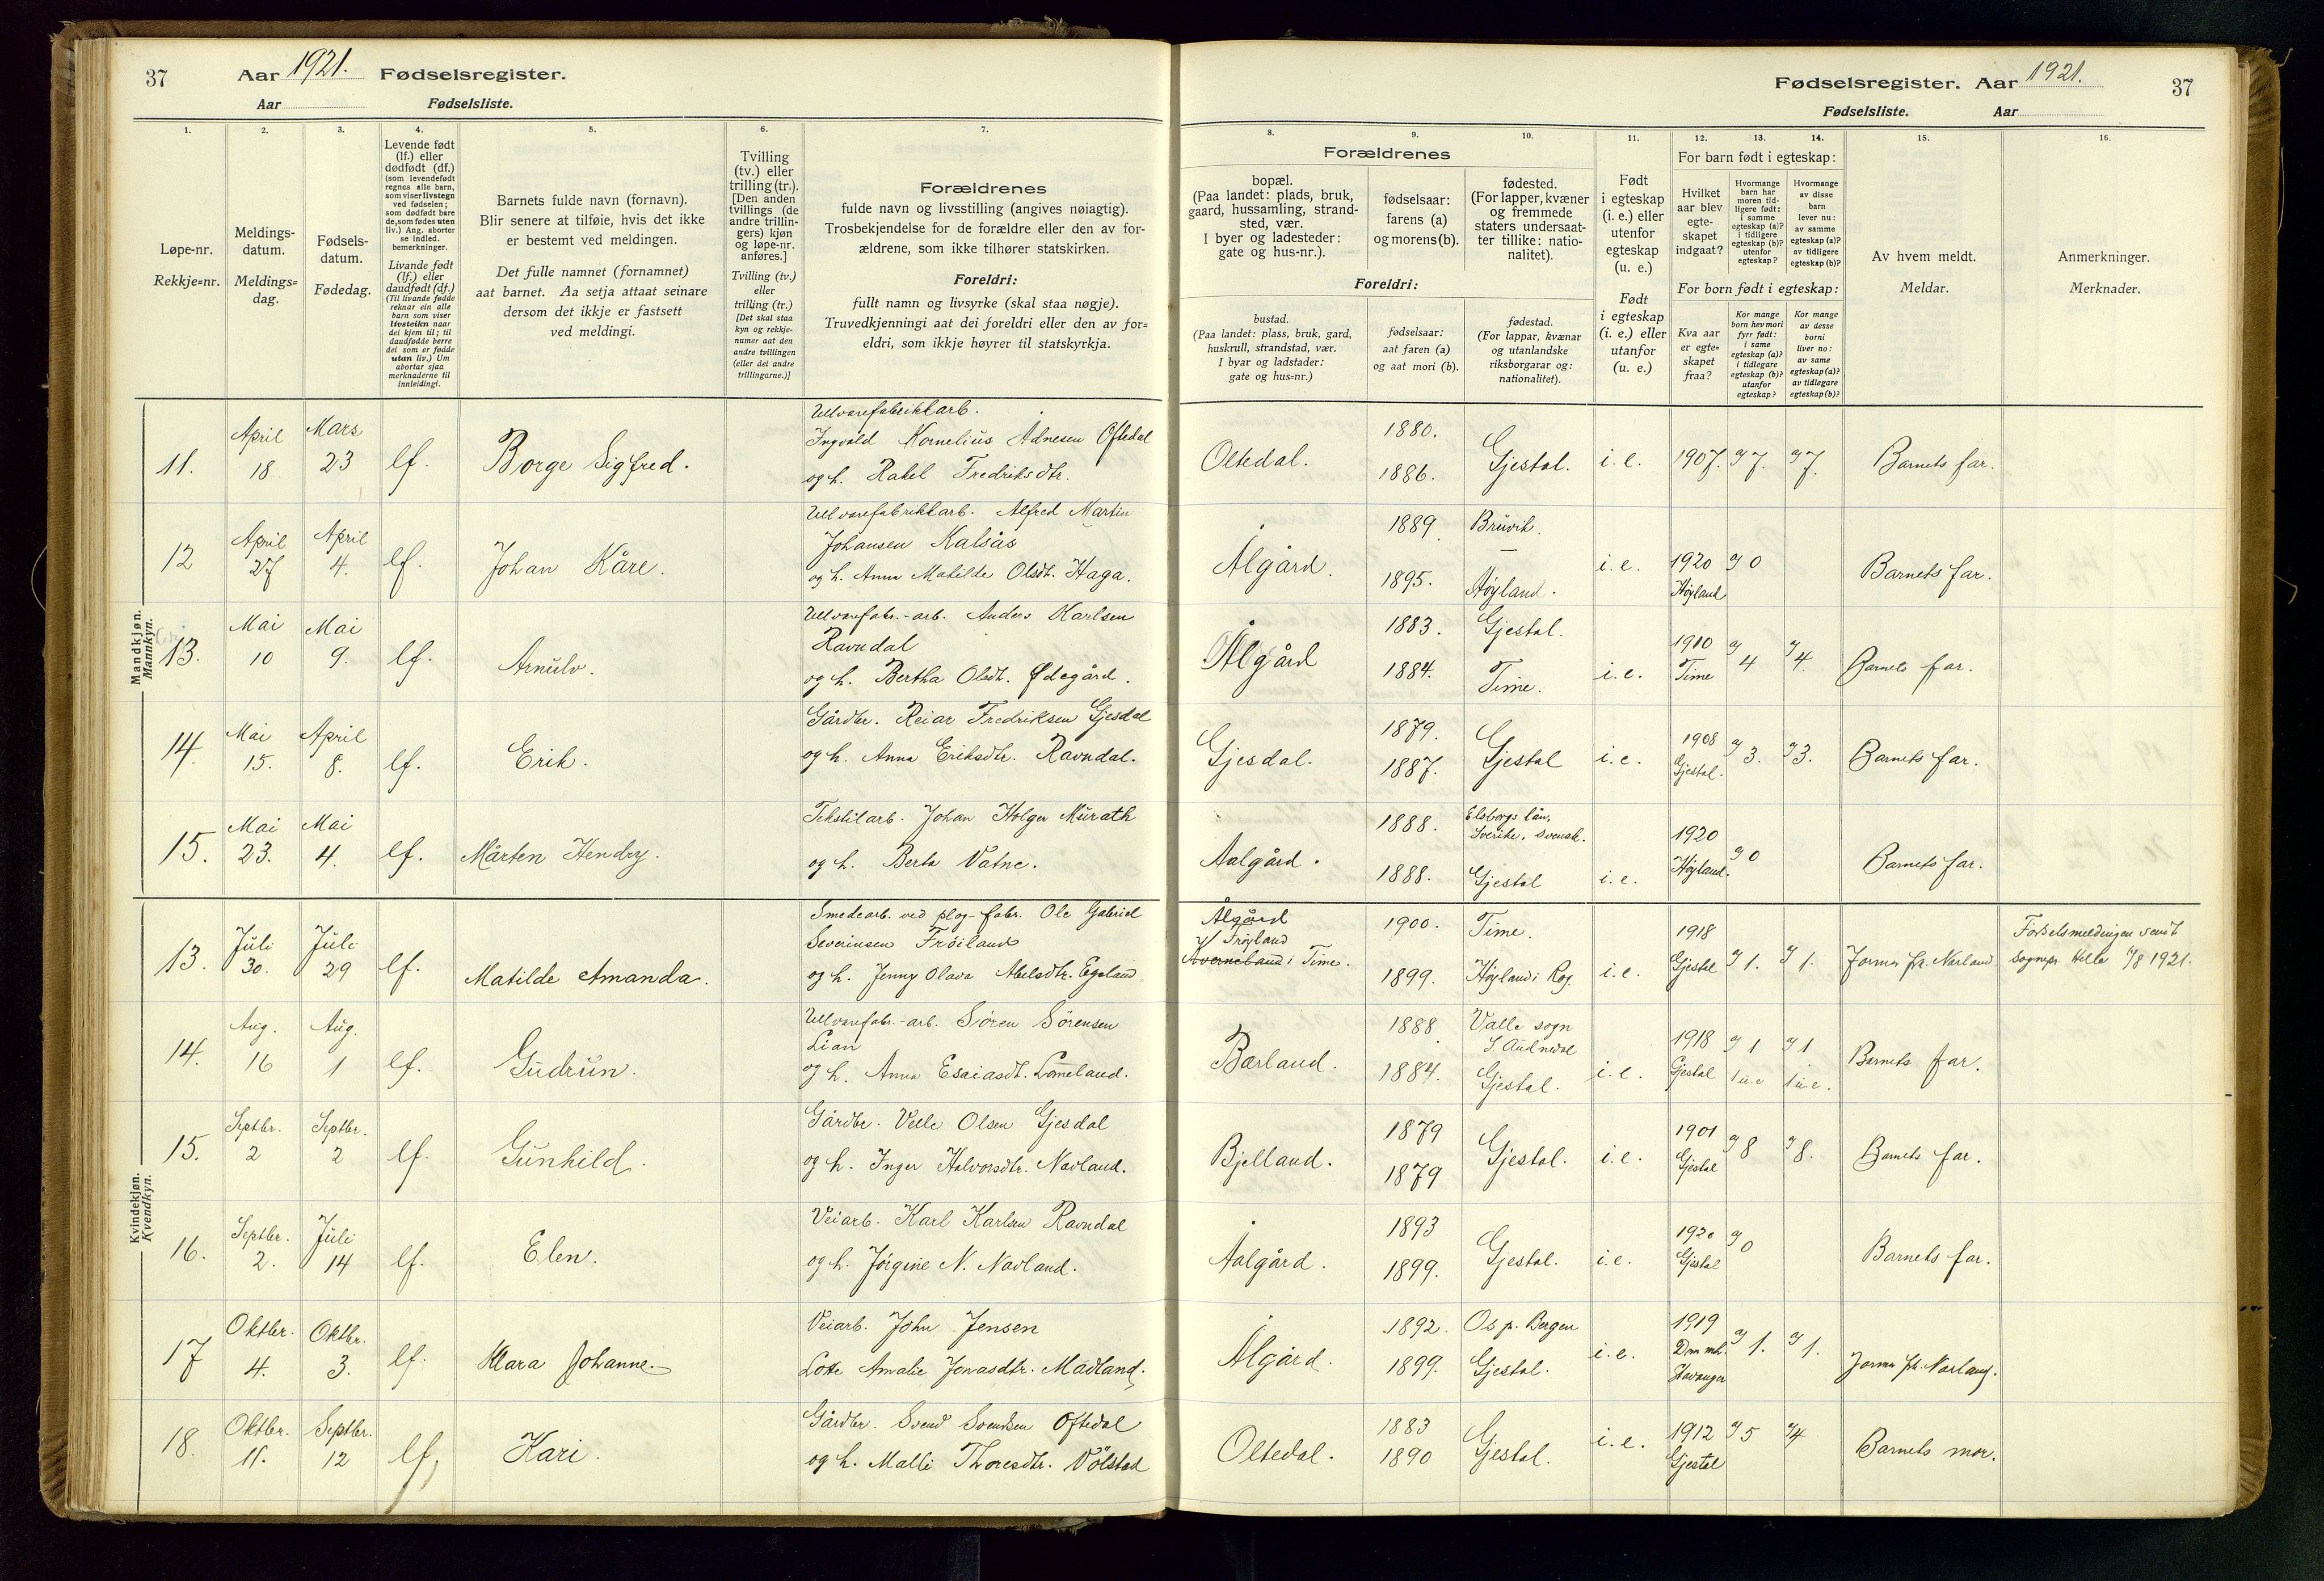 37
Aar 1921. Fødselsregister.
Aar Fødselsliste.
Fødselsregister. Aar 1921.
37
Fødselsliste. Aar
1.
Løpe-nr.
Rekkje=nr.
2.
Meldings-
datum.
Meldings=
dag.
3.
Fødsels-
datum.
Fødedag.
4.
Levende født
(lf.) eller
dødfødt (df.)
(som levendefødt
regnes alle barn,
som viser livstegn
ved fødselen;
som dødfødt bare
de, som fødes uten
liv.) Ang. aborter
se indled.
bemerkninger.
Livande født
(lf.) eller
daudfødt (df.)
(Til livande fødde
reknar ein alle
barn som viser
livsteikn naar
dei kjem til; til
daudfødde berre
dei som er fødde
utan liv.) Um
abortar sjaa
merknaderne til
innleidingi.
5.
Barnets fulde navn (fornavn).
Blir senere at tilføie, hvis det ikke
er bestemt ved meldingen.
Det fulle namnet (fornamnet)
aat barnet. Aa setja attaat seinare
dersom det ikkje er fastsett
ved meldingi.
6.
Tvilling
(tv.) eller
trilling (tr.).
[Den anden
tvillings (de
andre trillin-
gers) kjøn
og løpe-nr.
anføres.]
Tvilling (tv.)
eller
trilling (tr.)
[Det skal staa
kyn og rekkje-
numer aat den
andre tvillingen
(eller dei andre
trillingarne.)]
7.
Forældrenes
fulde navn og livsstilling (angives nøiagtig).
Trosbekjendelse for de forældre eller den av for-
ældrene, som ikke tilhører statskirken.
Foreldri:
fullt namn og livsyrke (skal staa nøgje).
Truvedkjenningi aat dei foreldri eller den av for=
eldri, som ikkje høyrer til statskyrkja.
Forældrenes
8.
bopæl.
(Paa landet: plads, bruk,
gaard, hussamling, strand-
sted, vær.
I byer og ladesteder:
gate og hus-nr.).
9.
fødselsaar:
farens (a)
og morens (b).
10.
fødested.
(For lapper, kvæner
og fremmede
staters undersaat-
ter tillike: natio-
nalitet).
Foreldri:
bustad.
(Paa landet: plass, bruk, gard,
huskrull, strandstad, vær.
I byar og ladstader:
gate og hus=nr.)
fødselsaar:
aat faren (a)
og aat mori (b).
fødestad.
(For lappar, kvænar
og utanlandske
riksborgarar og:
nationalitet).
11.
Født
i egteskap
(i. e.) eller
utenfor
egteskap
(u. e.)
Født
i egteskap
(i. e.) eller
utanfor
(u. e.)
For barn født i egteskap:
12.
Hvilket
aar blev
egte-
skapet
indgaat?
13.
Hvormange
barn har
moren tid-
ligere født:
i samme
egteskap (a)?
i tidligere
egteskap (b)?
utenfor
egteskap?
14.
Hvormange
av disse
barn
lever nu:
av samme
egteskap (a)?
av tidligere
egteskap (b)?
For born født i egteskap:
Kva aar
er egte=
skapet
fraa?
Kor mange
born hev mori
fyrr født:
i same
egteskap (a)?
i tidlegare
egteskap (b)?
utanfor
egteskap?
Kor mange
av desse
borni
liver no:
av same
egteskap (a)?
av tidlegare
egteskap (b)?
15.
Av hvem meldt.
Meldar.
16.
Anmerkninger.
Merknader.
Mandkjøn.
Mannkyn.
11. April 18 Mars 23 lf. Borge Sigfred.
Ullvarefabrikkarb.
Ingvald Kornelius Adnesen Oftedal
og h. Rakel Fredriksdtr.
Oltedal. 1880. 1886. Gjestal. i. e. 1907. 7. 7. Barnets far.
12 April 27 April 4. lf. Johan Kåre.
Ullvarefabrikkarb. Alfred Martin
Johansen Kalsås
og h. Anna Matilde Olsdt. Haga.
Ålgård. 1889 1895. Bruvik. Høyland. i. e. 1920 Høyland 0 Barnets far.
13. Mai 10 Mai 9. lf. Arnulv.
Ullvarefabr.-arb. Anders Karlsen
Ravndal
og h. Bertha Olsdt. Ødegård.
Ålgård 1883. 1884. Gjestal. Time. i. e. 1910 Time 4 4. Barnets far.
14. Mai 15. April 8. lf. Erik.
Gårdbr. Reiar Fredriksen Gjesdal
og h. Anna Eriksdtr. Ravndal.
Gjesdal. 1879. 1887. Gjestal i. e. 1908 Gjestal. 3. 3. Barnets far.
15. Mai 23. Mai 4. lf. Mårten Hendry.
Tekstilarb. Johan Holger Murath
og h. Berta Vatne.
Aalgård. 1888. 1888. Elsborgs län, Sverike. svensk. Gjestal i. e. 1920 Høyland. 0 Barnets far.
Kvindekjøn.
Kvendkyn.
13. Juli 30. Juli 29 lf. Matilde Amanda.
Smedearb. ved plog-fabr. Ole Gabriel
Severinsen Frøiland
og h. Jenny Olava Abelsdtr. Egeland
Ålgård
Frøyland
Kverneland i Time.
1900. 1899. Time. Høyland i Rog. i. e. 1918 Gjestal 1. 1. Jorm. fr. Norland
Fødselsmeldingen sendt
sognepr. Helle 1/8 1921.
14. Aug. 16 Aug. 1 lf. Gudrun.
Ullvarefabr.-arb. Søren Sørensen
Lian
og h. Anna Esaiasdt. Lomeland.
Bærland. 1888 1884. Valle sogn S. Audnedal Gjestal. i. e. 1918 Gjestal 1 1 u. e 1 1 u. e. Barnets far.
15. Septbr. 2 Septbr. 2 lf. Gunhild.
Gårdbr. Velle Olsen Gjesdal
og h. Inger Halvorsdtr. Navland.
Bjelland. 1879 1879 Gjestal. i. e. 1901 Gjestal 8 8. Barnets far.
16. Septbr. 2. Juli 14 lf. Elen.
Veiarb. Karl Karlsen Ravndal
og h. Jørgine N. Navland.
Aalgård. 1893 1899. Gjestal. i. e. 1920 Gjestal 0 Barnets far.
17 Oktbr. 4. Oktbr. 3. lf. Klara Johanne.
Veiarb. John Jensen
Lotte Amalie Jonasdtr. Madland.
Ålgård. 1892. 1899. Os p. Bergen Gjestal. i. e. 1919 Dommh. Stavanger 1. 1. Jorm. fr. Norland.
18. Oktbr. 11. Septbr. 12 lf. Kari.
Gårdbr. Svend Svendsen Oftedal
og h. Malli Thoresdtr. Vølstad
Oltedal. 1883 1890 Gjestal. i. e. 1912 Gjestal 5 4 Barnets mor.